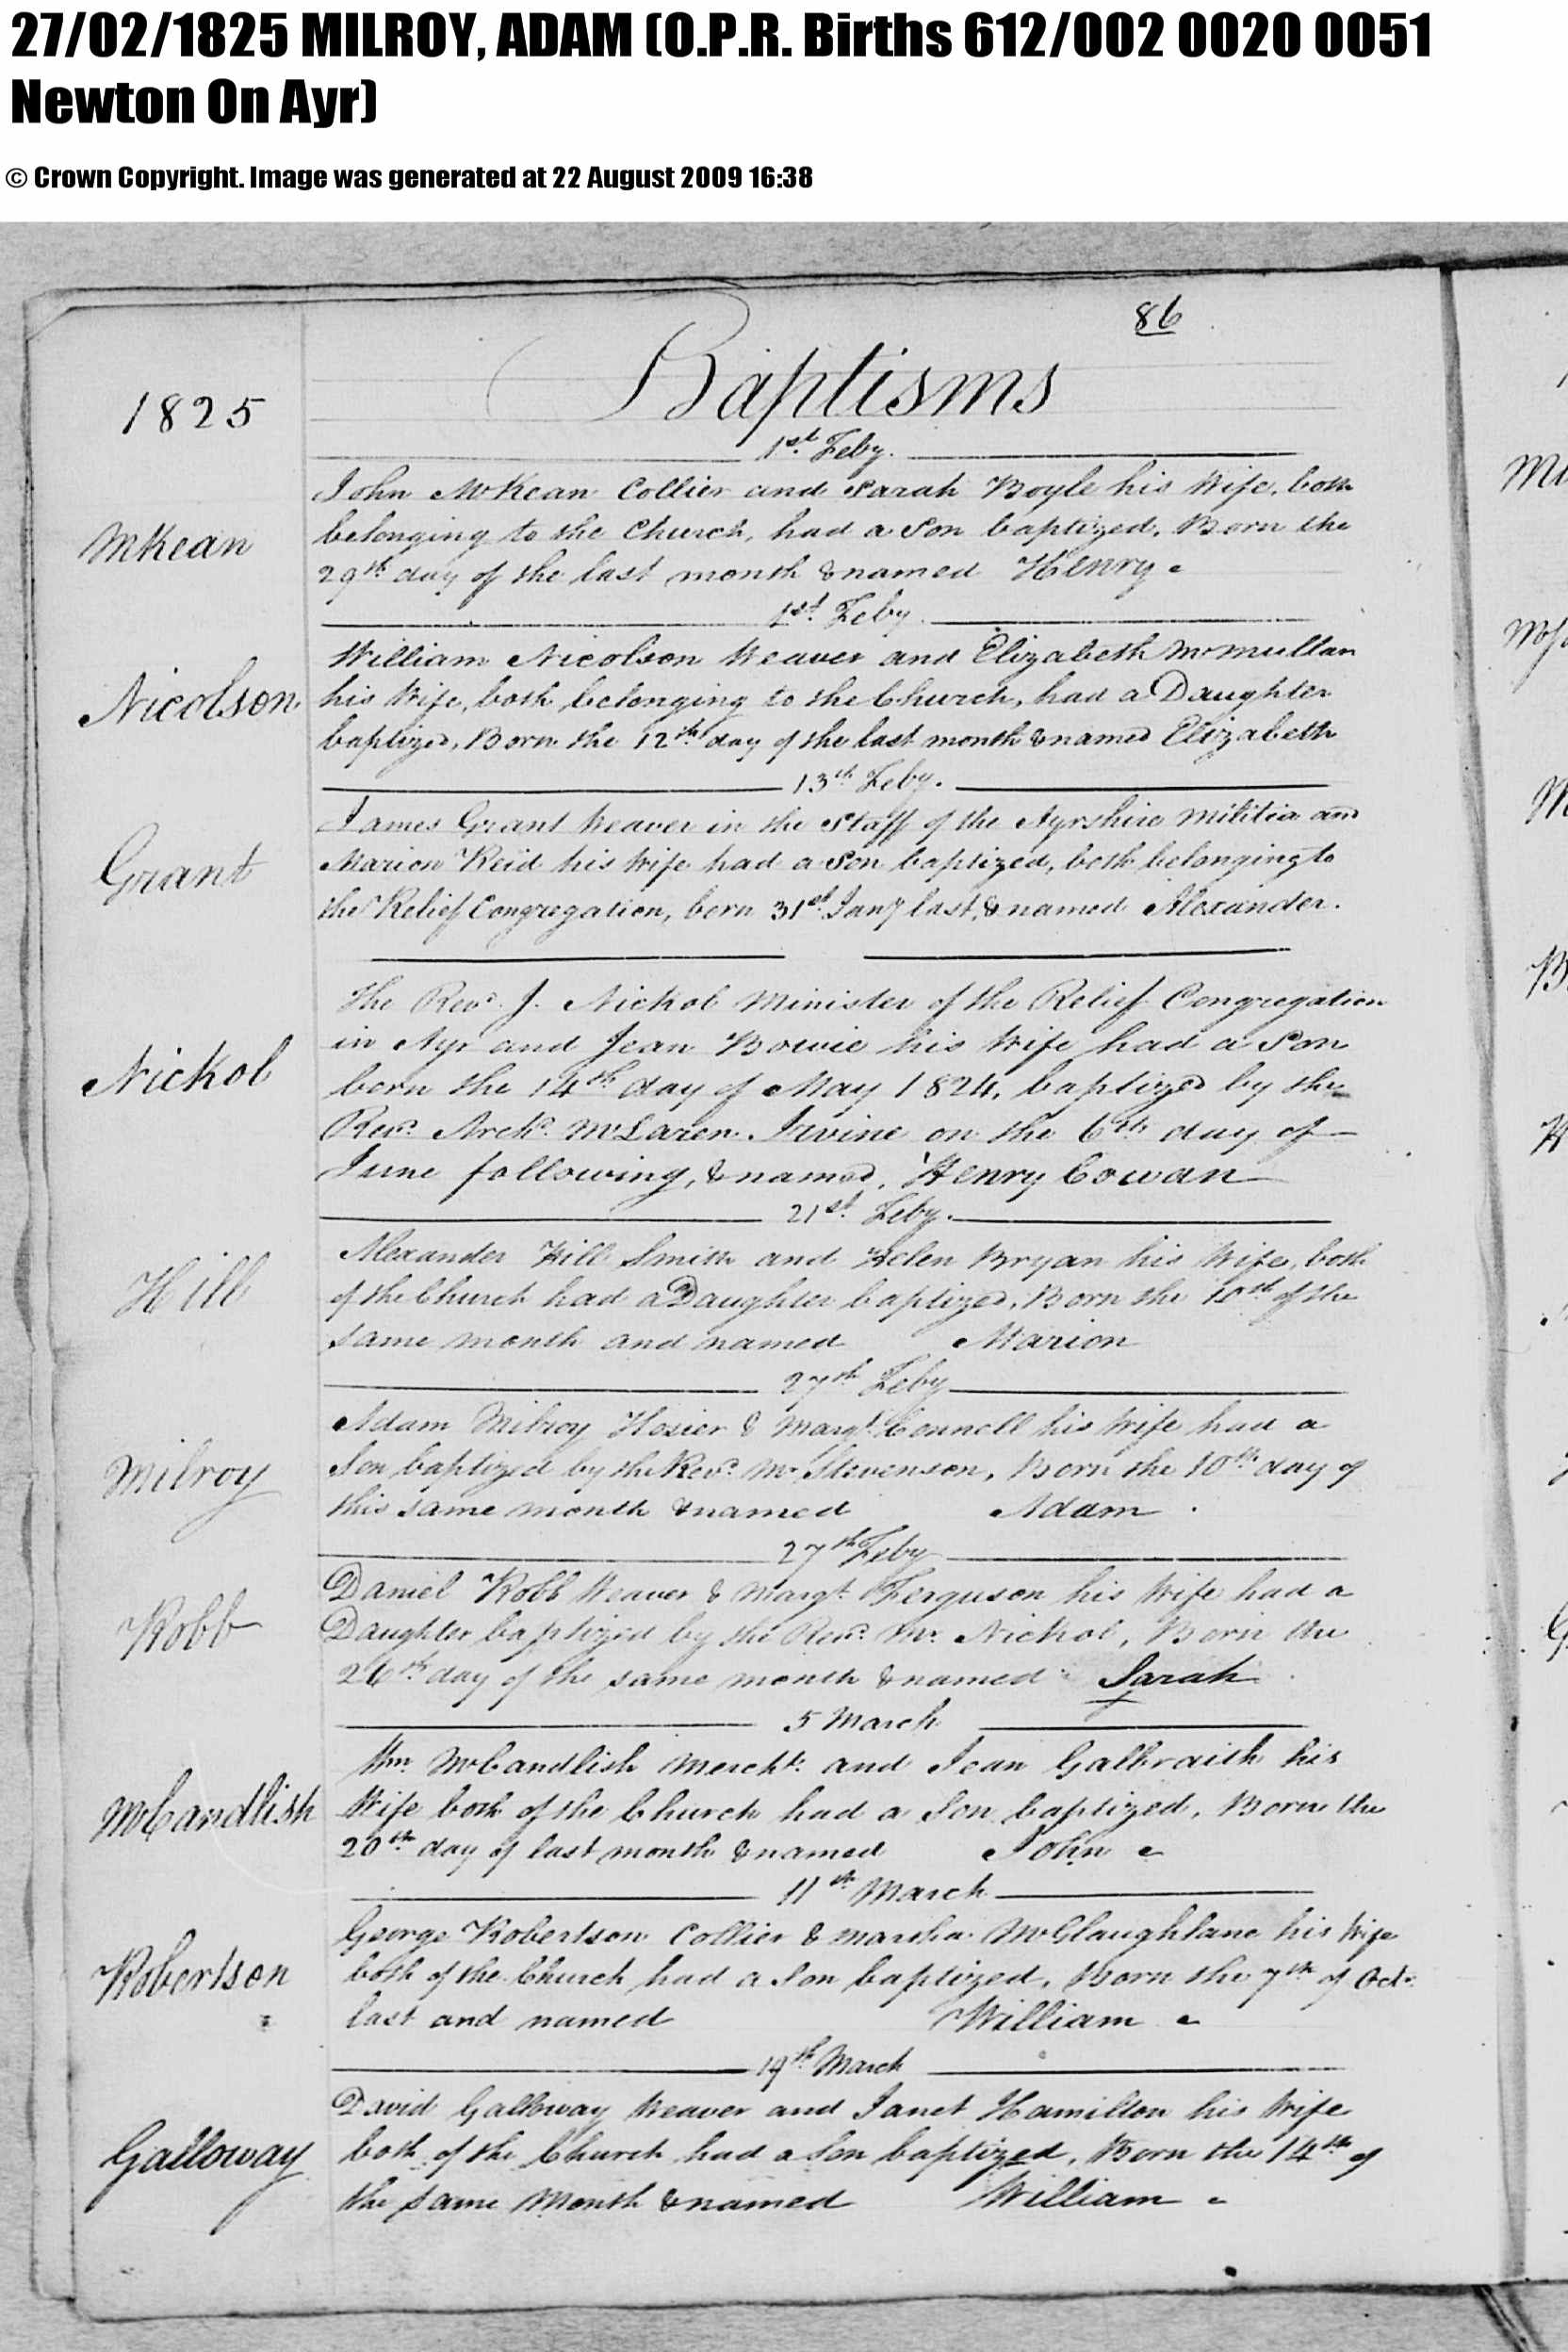 27/02/1825 MILROY, ADAM (O.P.R. Births 612/002 0020 0051
Newton On Ayr)
© Crown Copyright. Image was generated at 22 August 2009 16:38
86
1825
Baptisms
1st. Feby.
John McKean Collier and Sarah Boyle his Wife, both
McKean
belonging to the Church, had a Son baptized, Born the
29th day of the last month & named Henry
1st. Feby.
William Nicolson Weaver and Elizabeth McMullan
Nicolson
his Wife, both belonging to the Church, had a Daughter
baptized, Born the 12th day of the last month & named Elizabeth
13th Feby.
James Grant Weaver in the Staff of the Ayrshire Militia and
Grant
Marion Reid his Wife had a Son baptized, both belonging to
the Relief Congregation, born 31st. Jany last, & named Alexander.
The Revd. J. Nickol Minister of the Relief Congregation
in Ayr and Jean Bowie his Wife had a Son
Nickol
born the 14th day of May 1824, baptized by the
Revd. Archd. McLaren Irvine on the 6th day of
June following, & named, Henry Cowan
21st. Feby.
Alexander Hill Smith and Helen Bryan his Wife, both
Hill
of the Church had a Daughter baptized, Born the 10th of the
same month and named Marion
27th Feby
Adam Milroy Hosier & Margt. Connell his Wife had a
Milroy
Son baptized by the Revd. Mr Stevenson, Born the 10th day of
this same month & named Adam.
27th Feby
Daniel Robb Weaver & Margt. Ferguson his Wife had a
Robb
Daughter baptized by the Revd. Mr. Nickol, Born the
26th day of the same month & named Sarah
5 March
Wm. McCandlish Mercht. and Jean Galbraith his
McCandlish
Wife both of the Church had a Son baptized, Born the
20th day of last month & named John
11th March
George Robertson Collier & Martha McGlaughlane his Wife
Robertson
both of the Church had a Son baptized, Born the 7th of Octr.
last and named William
19th March
David Galloway Weaver and Janet Hamilton his Wife
Galloway
both of the Church had a Son baptized, Born the 14th of
the same Month & named William